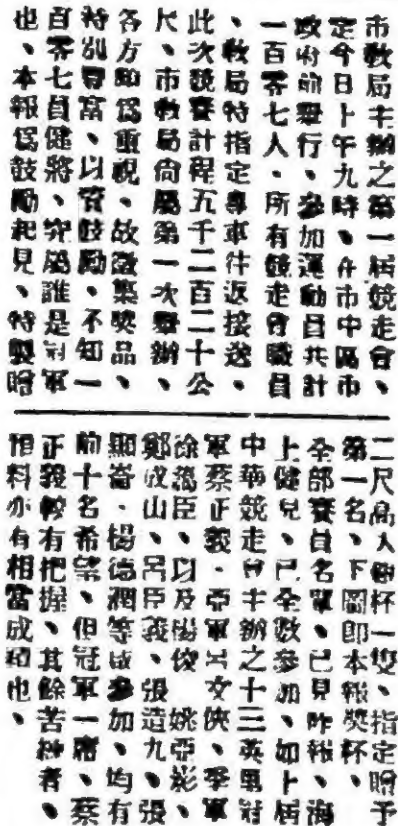 市教局主辦之第一屆競走會、
定今日上午九時、在市中區市
政府前舉行、參加運動員共計
一百零七人、所有競走會職員
、教局特指定專車往返接送、
此次競賽計程五千二百二十公
尺、市教局尚屬第一次舉辦、
各方頗爲重視、故徵集獎品、
特別豐富、以資鼓勵、不知一
百零七員健將、究屬誰是冠軍
也、本報爲鼓勵起見、特製贈
二尺高大銀杯一隻、指定贈予
第一名、下圖即本報獎杯、
全部賽員名單、已見昨報、海
上健兒、已全數參加、如上屆
中華競走會主辦之十三英里冠
軍蔡正義、亞軍呂文俠、季軍
徐蔭臣、以及楊俊 姚亞影、
鄭成山、呂臣義、張造九、張
顯崙、楊德潤等成參加、均有
前十名希望、但冠軍一席、蔡
正義較有把握、其餘苦練者、
預料亦有相當成績也、